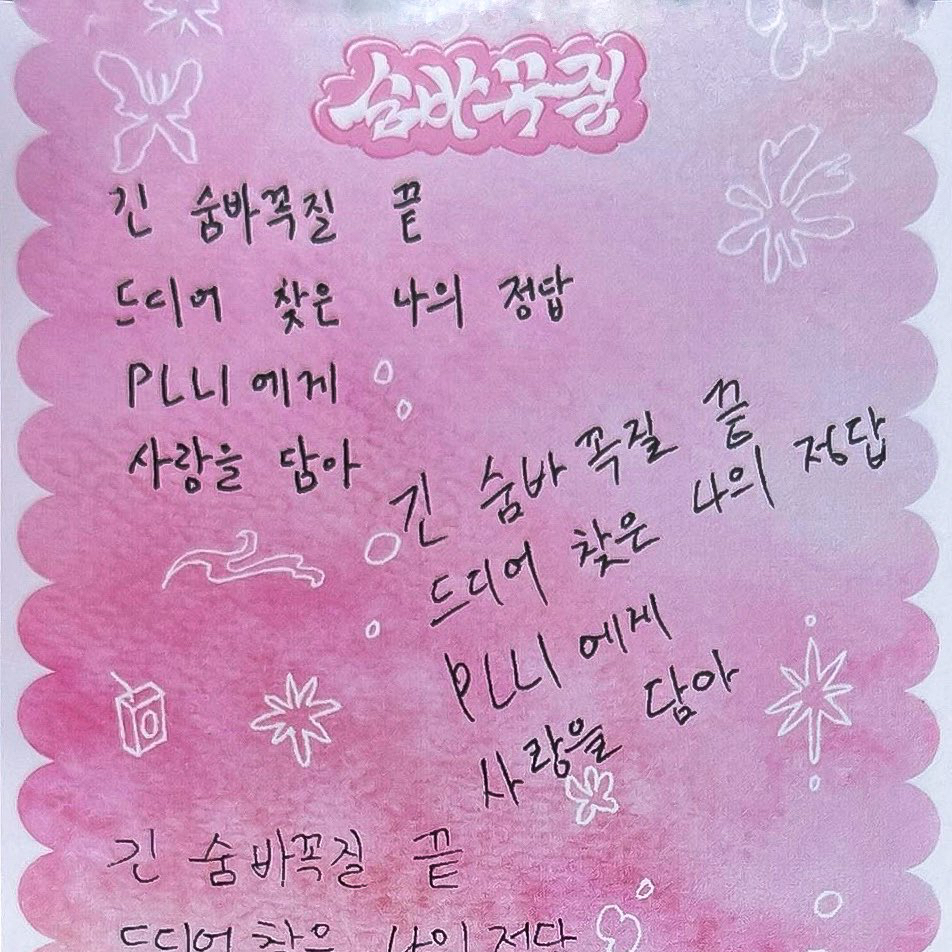 숨바꼭질
긴 숨바꼭질 끝
드디어 찾은 나의 정답
PLLI에게
사랑을 담아
긴 숨바꼭질 끝
드디어 찾은 나의 정답
PLLI에게
사랑을 담아
긴 숨바꼭질 끝
드디어 찾은 나의